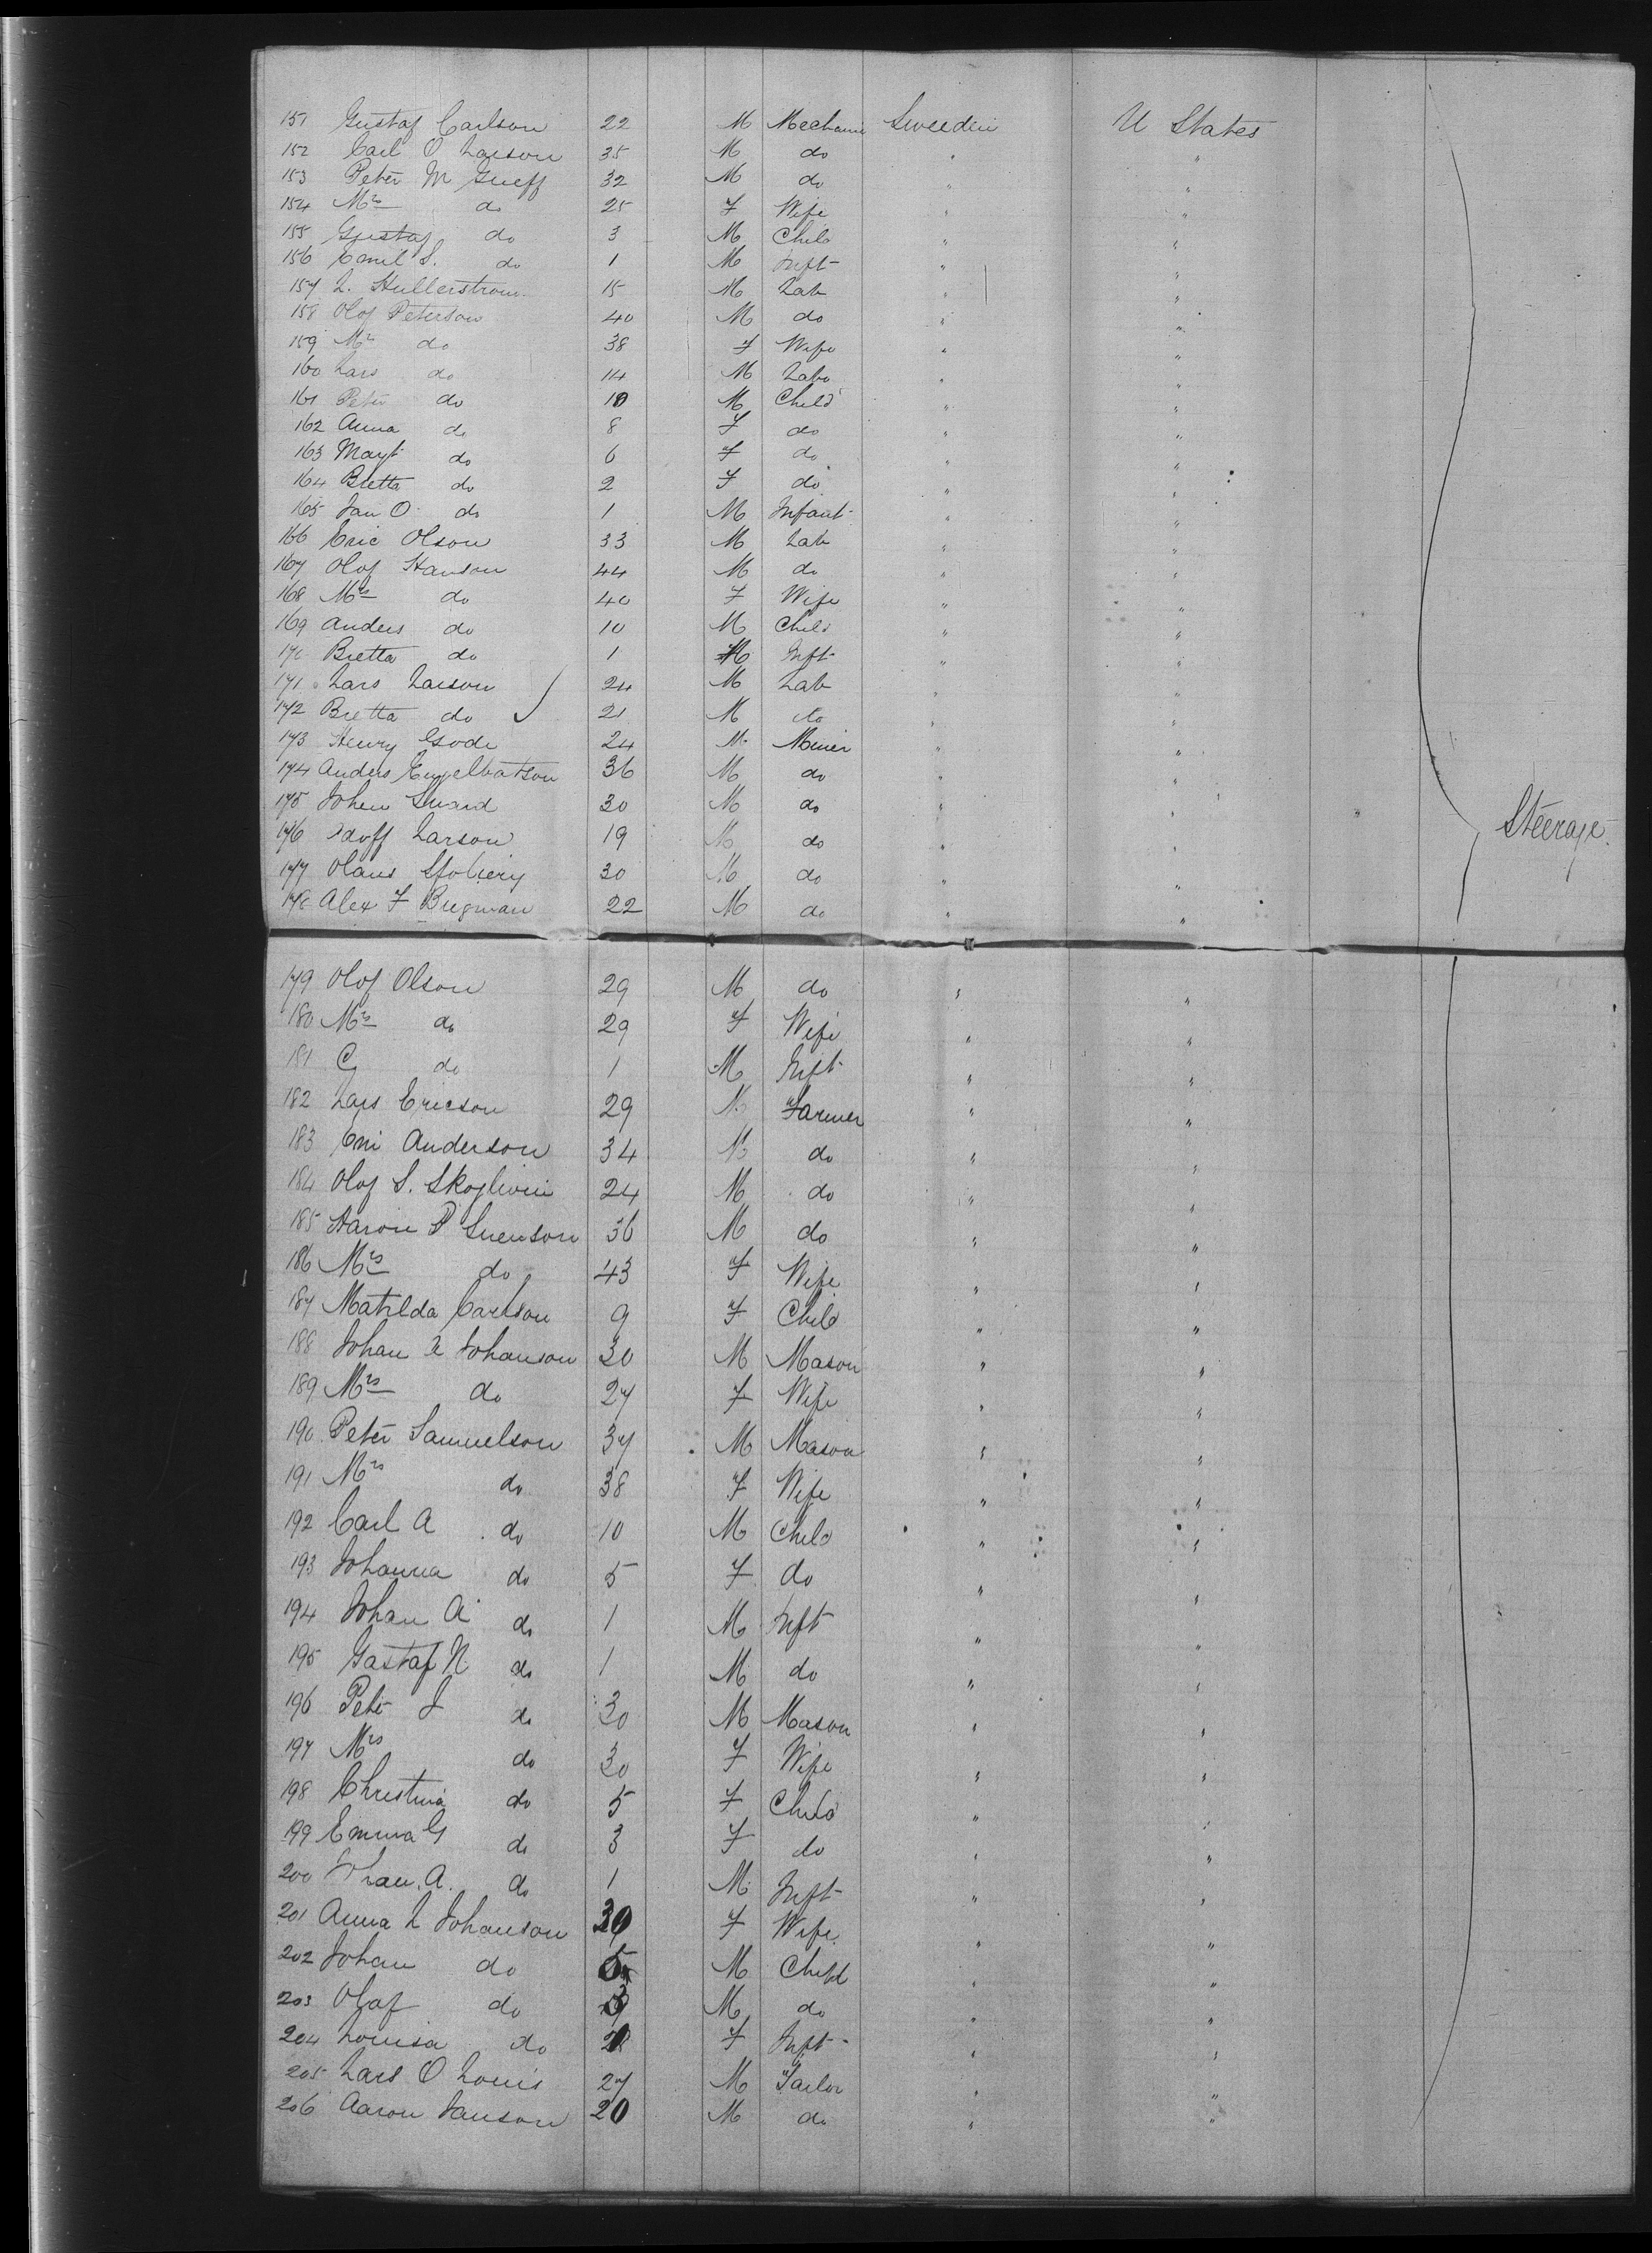 151 Gustaf Carlson 22 M Mechanic Sweeden U States
152 Carl O Larson 35 M do " "
153 Peter M 32 M do " "
154 Mrs do 25 F Wife " "
155 Gustaf do 3 M Child " "
156 Emil S. do 1 M Inft " "
157 L. Hullerstrom 15 M Lab " "
158 Olof Peterson 40 M do " "
159 Mrs do 38 F Wife " "
160 Lars do 14 M Labo " "
161 Peter do 10 M Child " "
162 Anna do 8 F do " "
163 Magt do 6 F do " "
164 Bretta do 2 F do " "
165 Jan O do 1 M Infant " "
166 Eric Olson 33 M Lab " "
167 Olof Hanson 44 M do " "
168 Mrs do 40 F Wife " "
169 Anders do 10 M Child " "
170 Bretta do 1 Inft " "
171 Lars Larson 24 M Lab " "
172 Bretta do 21 M do " "
173 Henry Gode 24 M Miner " "
174 Anders Engelbatson 36 M do " "
175 Johan 30 M do " "
176 Adoff Larson 19 M do " " Steerage
177 Olaus 30 M do " "
178 Alex F Bugman 22 M do " "
179 Olof Olson 29 M do " "
180 Mrs do 29 F Wife " "
181 C do 1 M Inft " "
182 Lars Ericson 29 M Farmer " "
183 Anderson 34 M do " "
184 Olof S. 24 M do " "
185 Haron P Suenson 36 M do " "
186 Mrs do 43 F Wife " "
187 Matilda Carlson 9 F Child " "
188 Johan Johanson 30 M Mason " "
189 Mrs do 27 F Wife " "
190 Peter Samuelson 37 M Mason " "
191 Mrs do 38 F Wife " "
192 Carl A do 10 M Child " "
193 Johanna do 5 F do " "
194 Johan A do 1 M Inft " "
195 Gastaf N do 1 M do " "
196 Peter J do 30 M Mason " "
197 Mrs do 30 F Wife " "
198 Christina do 5 F Child " "
199 Emma G do 3 F do " "
200 Johan A. do 1 M Inft " "
201 Anna L Johanson 30 F Wife " "
202 Johan do 5 M Child " "
203 Olaf do 3 M do " "
204 Louisa do F Inft " "
205 Lars O Louis 27 M Tailor " "
206 Aaron Janson 20 M do " "